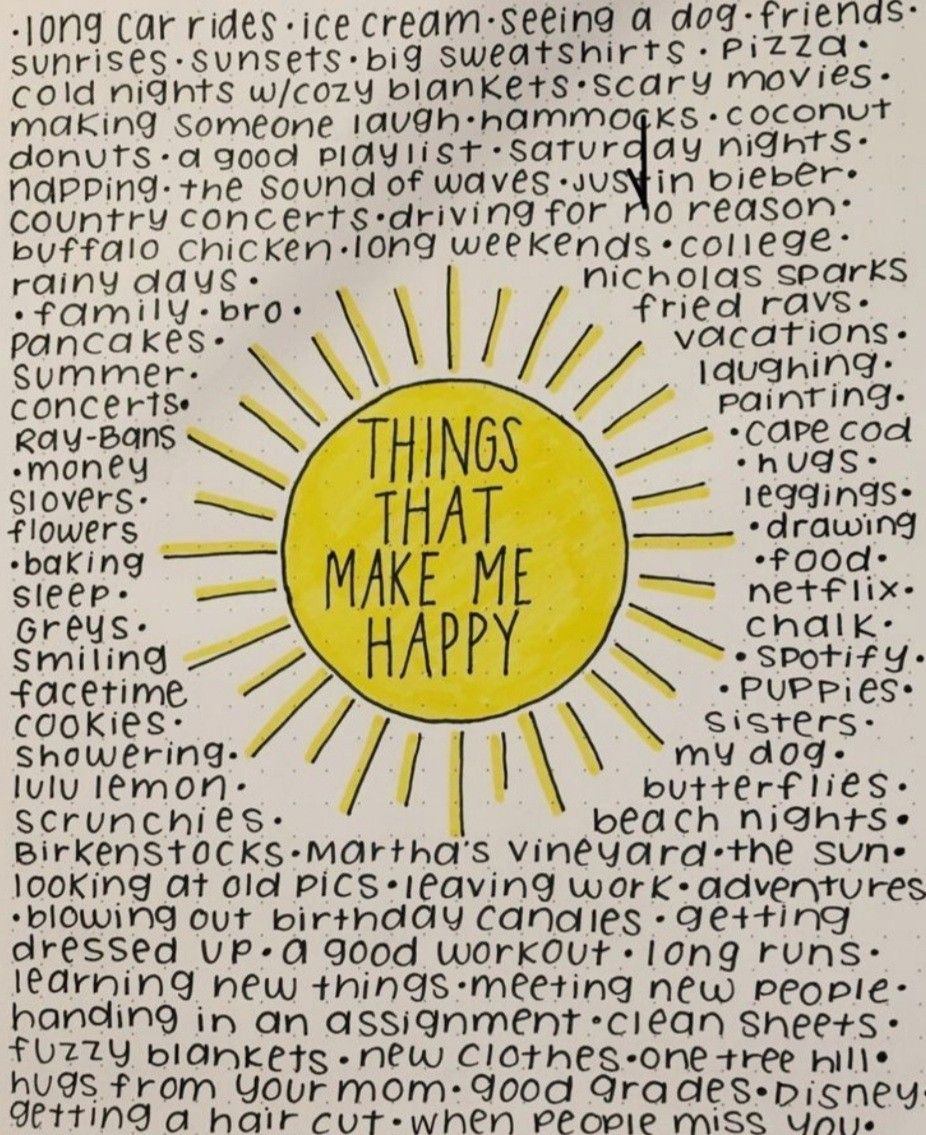 ·long car rides·ice cream·seeing a dog·friends·
sunrises·sunsets·big sweatshirts·pizza·
cold nights w/cozy blankets·scary movies·
making someone laugh·hammocks·coconut
donuts·a good playlist·saturday nights·
napping·the sound of waves·justin bieber·
country concerts·driving for no reason·
buffalo chicken·long weekends·college·
rainy days·
·family·bro·
pancakes·
summer·
concerts·
Ray-Bans
·money
slovers·
flowers
·baking
sleep·
Greys·
smiling
facetime
cookies·
showering·
lulu lemon·
scrunchies·
THINGS
THAT
MAKE ME
HAPPY
nicholas sparks
fried ravs·
vacations·
laughing·
painting·
·cape cod
·hugs·
leggings·
·drawing
·food·
netflix·
chalk·
·spotify·
·puppies·
sisters·
my dog·
butterflies·
beach nights·
Birkenstocks·Martha's vineyard·the sun·
looking at old pics·leaving work·adventures
·blowing out birthday candles·getting
dressed up·a good workout·long runs·
learning new things·meeting new people·
handing in an assignment·clean sheets·
fuzzy blankets·new clothes·one tree hill·
hugs from your mom·good grades·Disney·
getting a hair cut·when people miss you·